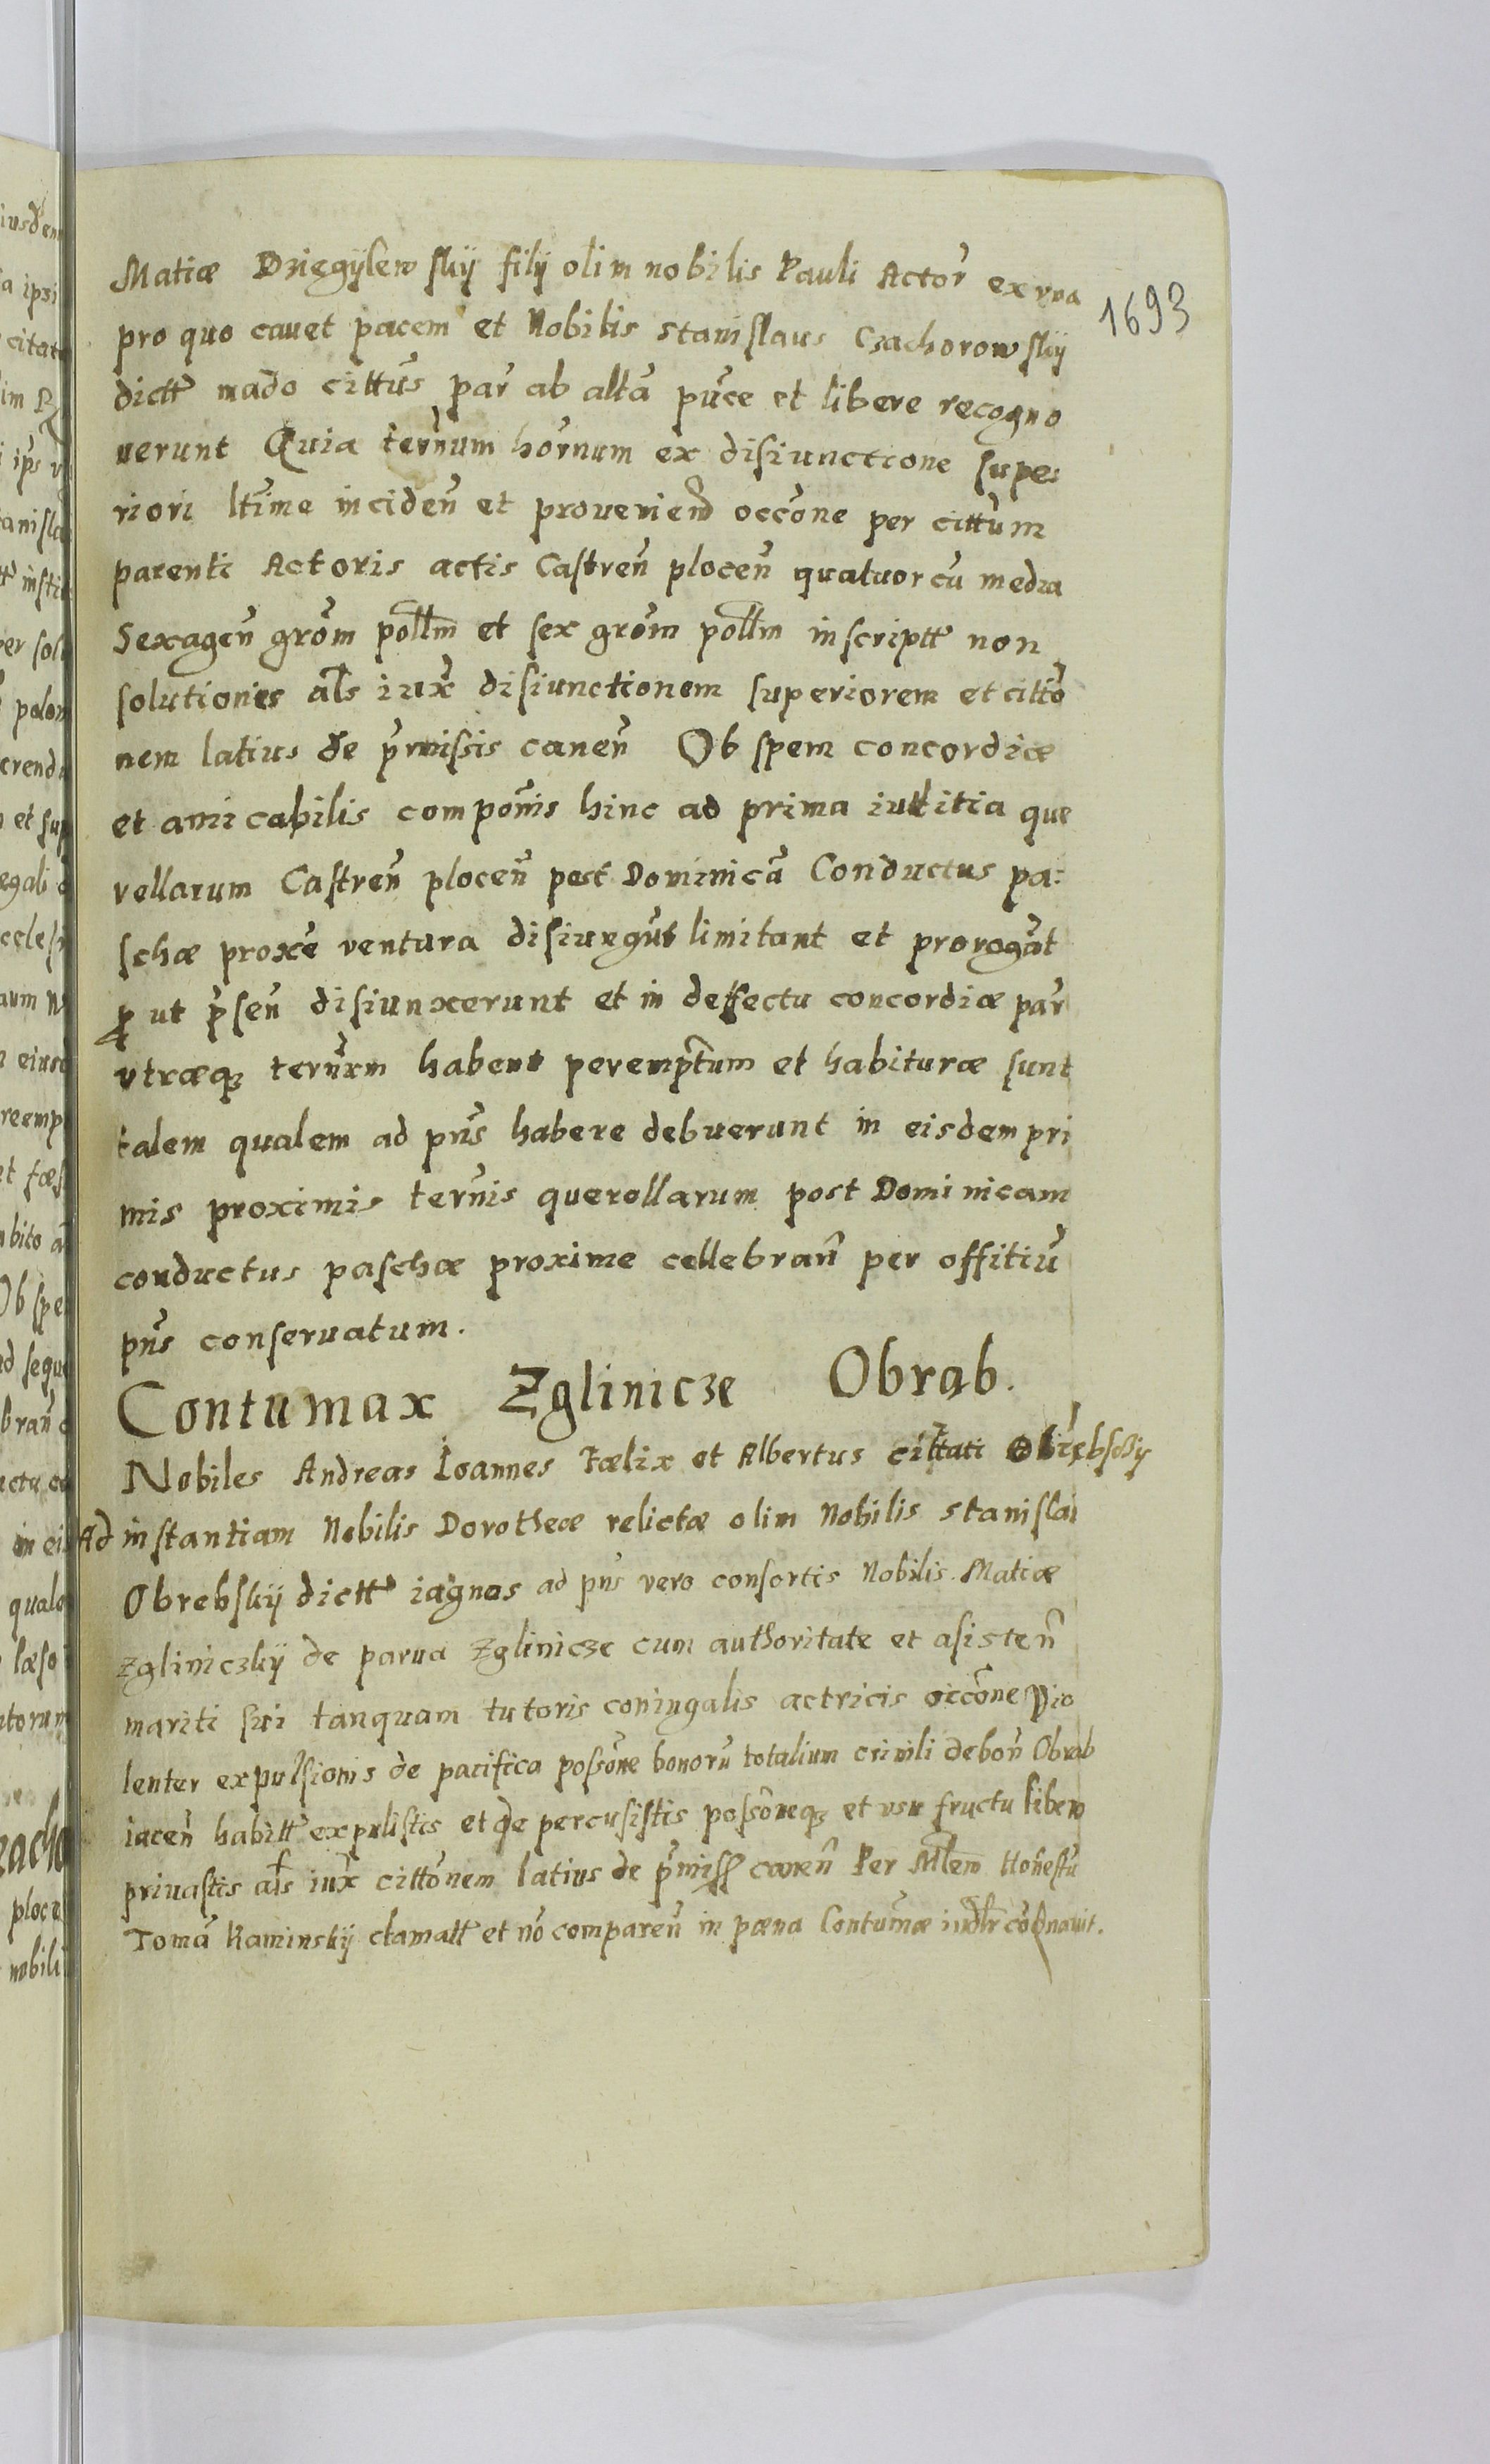 Matiæ Dziegÿlewskÿ filÿ olim nobilis Pauli Actor̃ ex vna
1693
pro quo cauet pacem et Nobilis Stanislaus Czachorowskÿ
dictt̃ mado cittũs par̃ ab altã pũce et libere recogno
uerunt Quia ter̃num hor̃num ex disiunctione supe:
riori ltĩme inciden̄ et prouenien̄ occōne per cittũm
parenti Actoris actis Castren̄ plocen̄ quatuor cũ media
Sexagen̄ grõm pollm̃ et sex grõm pollm̃ inscriptt̃ non
solutionis als̃ iux̃ disiunctionem superiorem et cittõ
nem latius de p̃missis canen̄ Ob spem concordiæ
et amicabilis compõnis hinc ad prima iuditia que
rellarum Castren̄ plocen̄ post Dominicã Conductus pa:
schæ proxẽ ventura disiungũt limitant et prorogãt
ꝓ ut p̃sen̄ disiunxerunt et in deffectu concordiæ par̃
vtræqꝫ ter̃num habent peremp̃tum et habituræ sunt
talem qualem ad pñs habere debuerunt in eisdem pri
mis proximis ter̃nis querellarum post Dominicam
conductus paschæ proxime cellebran̄ per offitiũ
pñs conseruatum.
Contumax Zglinicze Obrab.
Nobiles Andreas Ioannes Fælix et Albertus cittati Obrębsckÿ
Ad instantiam Nobilis Dorotheæ relictæ olim Nobilis Stanislai
Obrebskÿ dictt̃ iagnas ad pñs vero consortis Nobilis Matiæ
Zgliniczkÿ de parua Zglinicze cum authoritate et asisten̄
mariti sui tanquam tutoris coniugalis actricis occōne vio
lenter expulsionis de pacifica possõne bonorũ totalium ciuili de bon̄ Obrab
iacen̄ habitt̃ expulistis et de percusistis possõneqꝫ et vsu fructu libero
priuastis als̃ iux̃ cittõnem latius de p̃miss̃ canen̄ Per Mlẽm Honestũ
Tomã Kaminskÿ clamatt̃ et nõ comparen̄ in pæna Contum̃æ iudlr̃ cõdnauit.